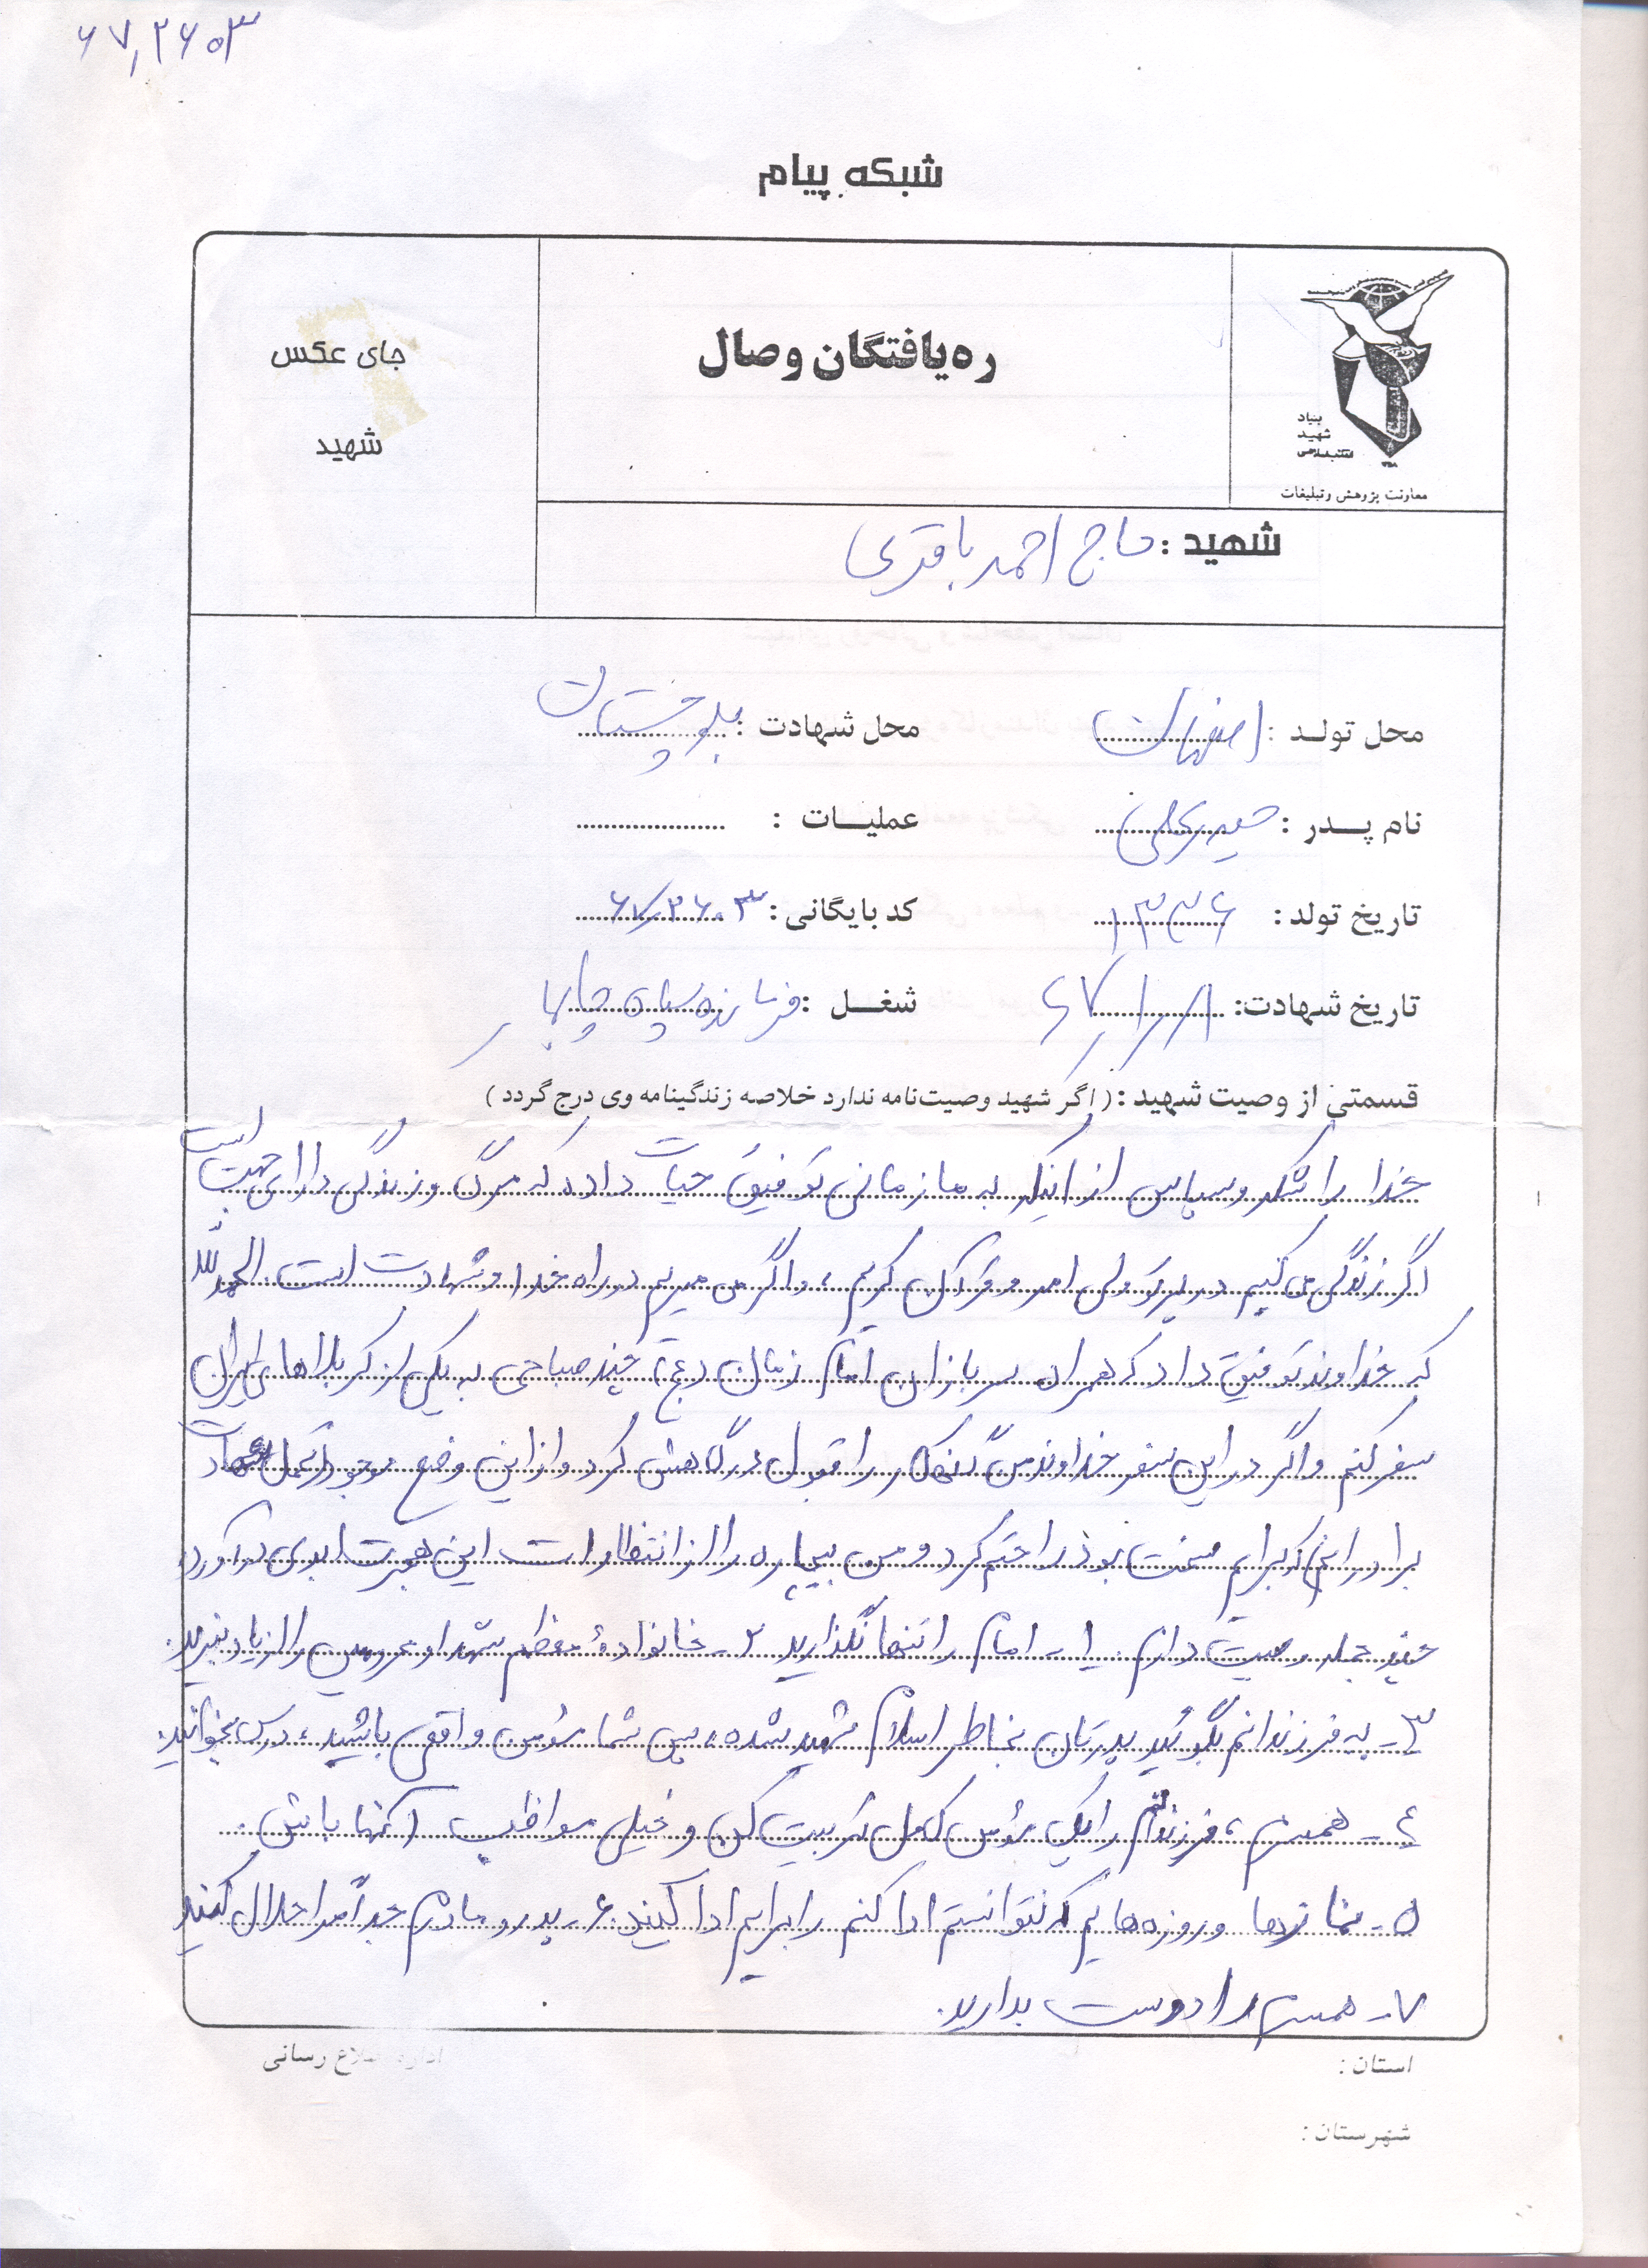 ۶۷,۲۶۰۳
شبکه پیام
ره‌یافتگان وصال
جای عکس
شهید
بنیاد
شهید
انقلاب اسلامی
معاونت پژوهش و تبلیغات
شهید : حاج احمد باقری
محل تولد : اصفهان محل شهادت : بلوچستان
نام پدر : حیدرعلی عملیات :
تاریخ تولد : ۱۳۳۶ کد بایگانی : ۶۷/۲۶۰۳
تاریخ شهادت: شغل : فرمانده سپاه چابهار
قسمتی از وصیت شهید : ( اگر شهید وصیت‌نامه ندارد خلاصه زندگینامه وی درج گردد )
خدا را شکر و سپاس از اینکه به ما زمانی توفیق حیات داده که مرگ و زندگی دارای جهت است
اگر زندگی می کنیم در پرتو ولی امر و قرآن کریم ، و اگر می میریم در راه خدا و شهادت است الحمدلله
که خداوند توفیق داد که همراه سربازان امام زمان (عج) چند صباحی به یکی از کربلاهای ایران
سفر کنم و اگر در این سفر خداوند من گنهکار را قبول درگاهش کرد و از این وضع موجود
برادرانم که برایم سخت بود راحتم کرد و من بیچاره را از انتظار این هجرت ابدی درآورد
چند جمله وصیت دارم . ۱- امام را تنها نگذارید ۲- خانواده معظم شهدا و مجروحین را از یاد نبرید.
۳- به فرزندانم بگوئید پدرتان بخاطر اسلام شهید شده ، پس شما مؤمن واقعی باشید ، درس بخوانید.
٤- همسرم ، فرزندانم را یک مؤمن کامل تربیت کن و خیلی مواظب آنها باش .
۵- نمازها و روزه‌هایم که نتوانستم ادا کنم را برایم ادا کنید. ۶- پدر و مادرم جداً مرا حلال کنید
۷- همسرم را دوست بدارید.
استان :
شهرستان :
اداره اطلاع رسانی